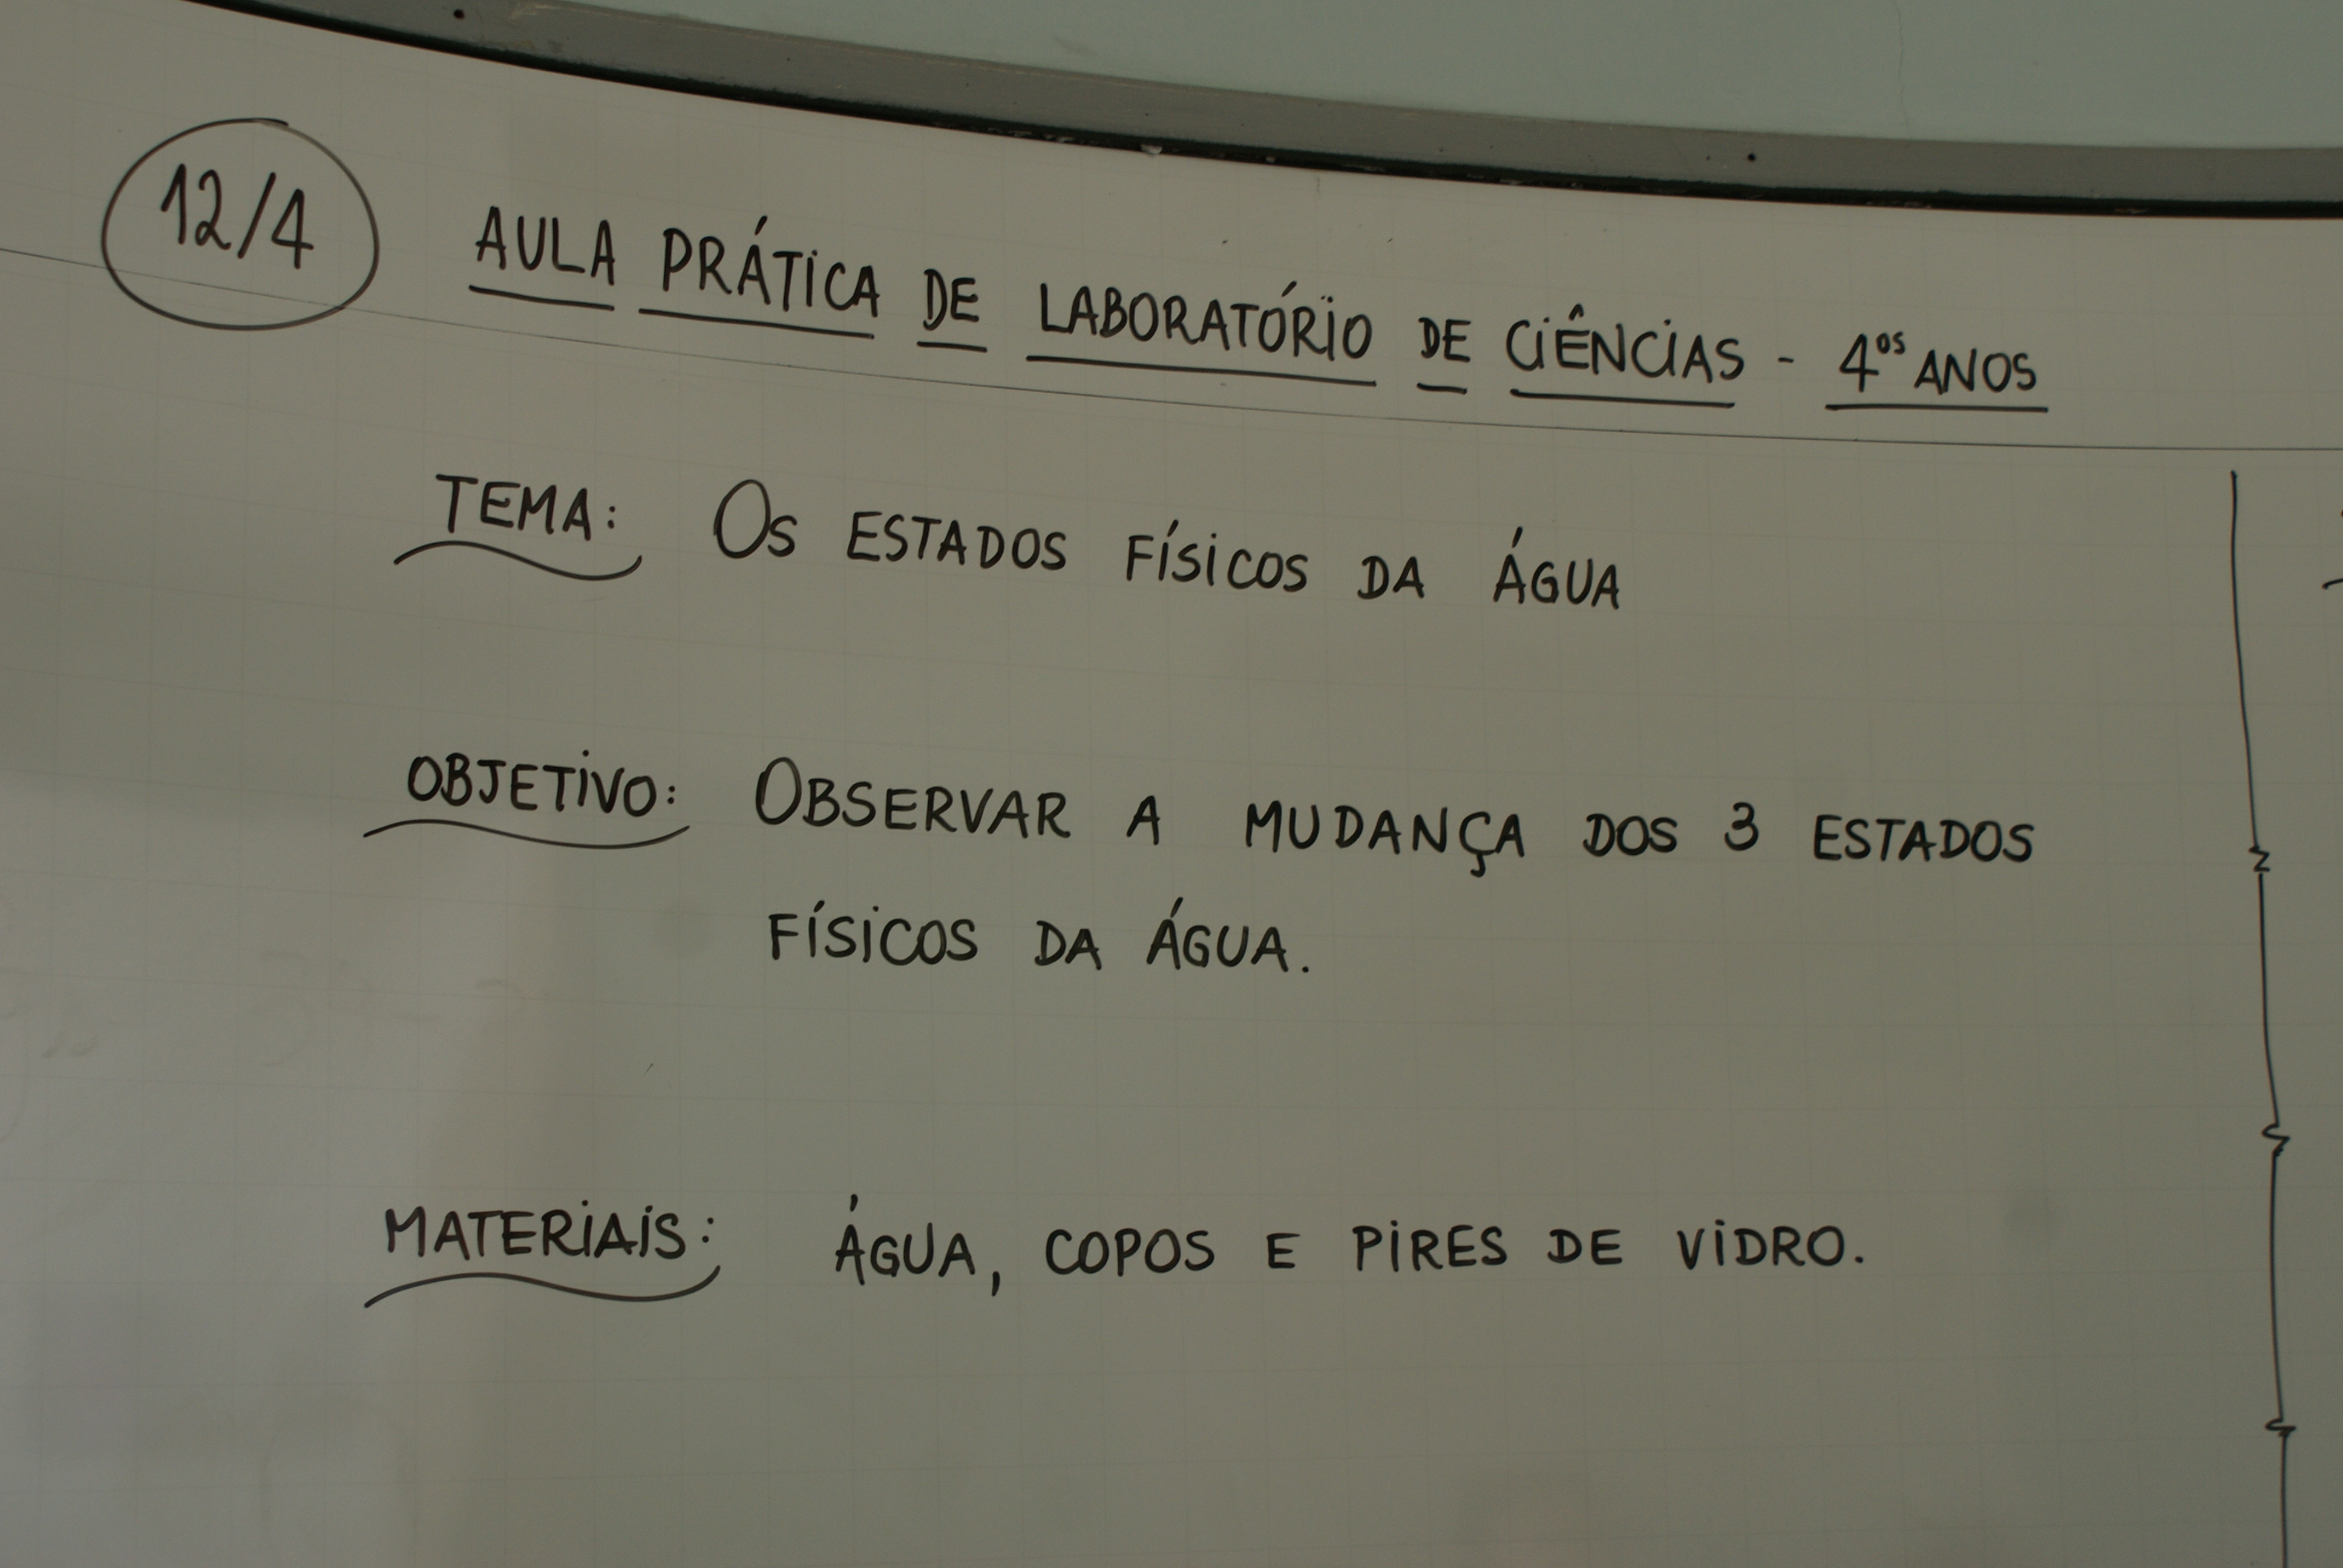 12/4
AULA PRÁTICA DE LABORATÓRIO DE CIÊNCIAS - 4ºˢ ANOS
TEMA: OS ESTADOS FÍSICOS DA ÁGUA
OBJETIVO: OBSERVAR A MUDANÇA DOS 3 ESTADOS
FÍSICOS DA ÁGUA.
MATERIAIS: ÁGUA, COPOS E PIRES DE VIDRO.